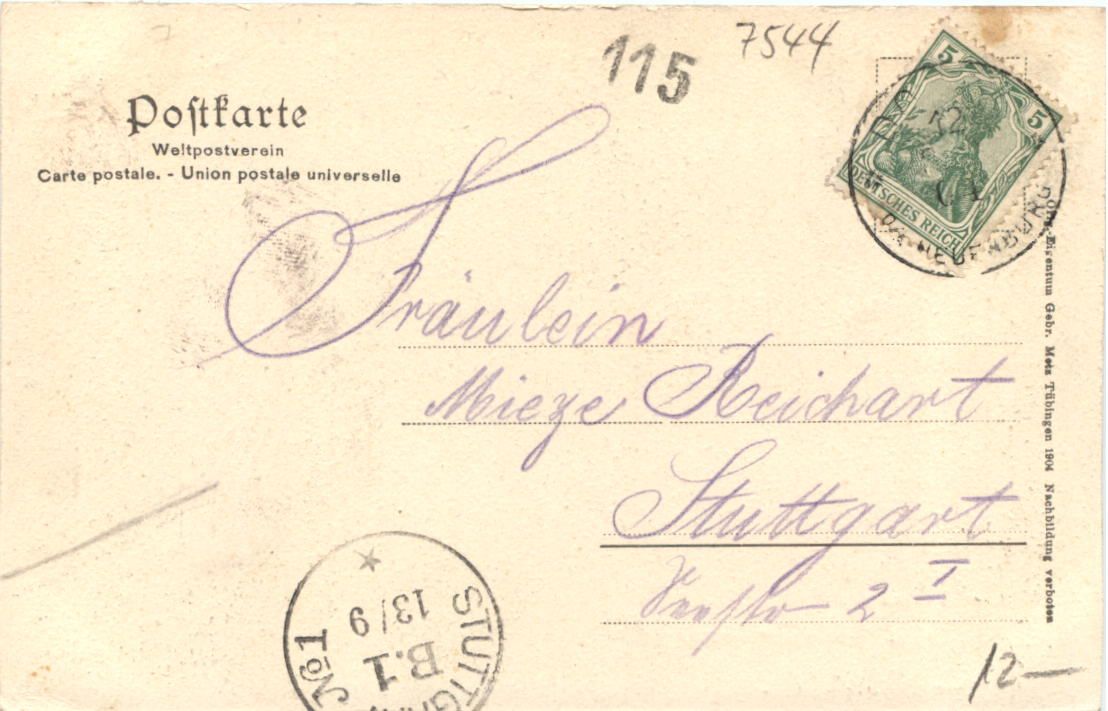 7544
115
5
5
DEUTSCHES REICH
Postkarte
Weltpostverein
Carte postale. - Union postale universelle
Fräulein
Mieze Reichart
Stuttgart
2 I
Eigentum Gebr. Metz Tübingen 1904 Nachbildung verboten
STUTTGA
13/9
B.1
No 1
12—